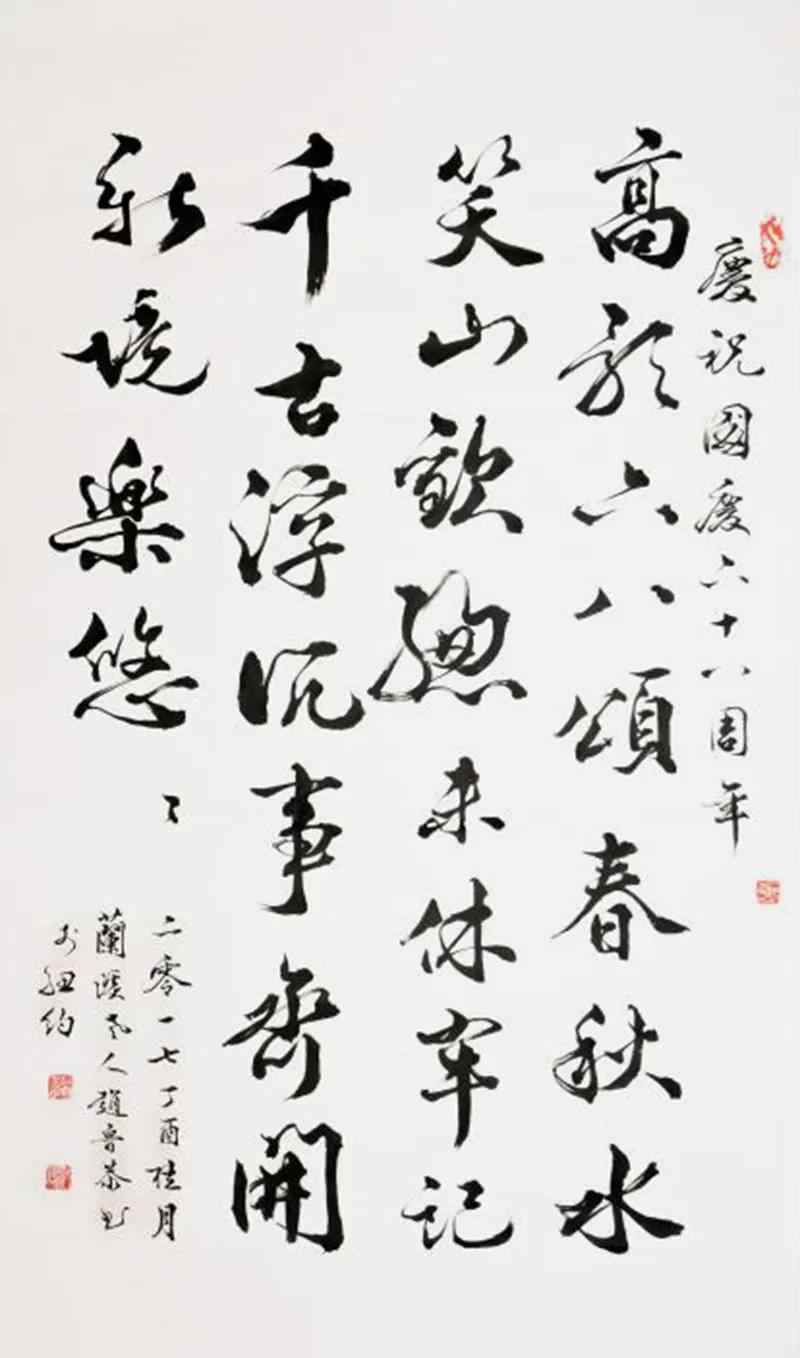 慶祝國慶六十八周年
高歌六八頌春秋水
笑山歡總未休牢記
千古浮沉事齊開
新境樂悠〻
二零一七丁酉桂月
蘭溪老人趙魯恭書
於紐約